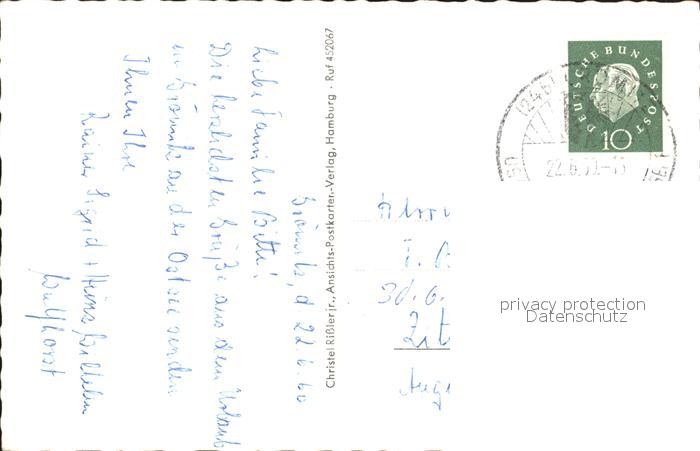 Grömitz, d 22.6.60
Liebe Familie Bitte!
Die herzlichsten Grüße aus dem Urlaub
in Grömitz an der Ostsee senden
Ihnen Ihre
Rainer Sigrid + Heinz
Christel Rißler jr., Ansichts-Postkarten-Verlag, Hamburg · Ruf 452067
DEUTSCHE BUNDESPOST
10
(24b)
22.6.
Herr
privacy protection
Datenschutz